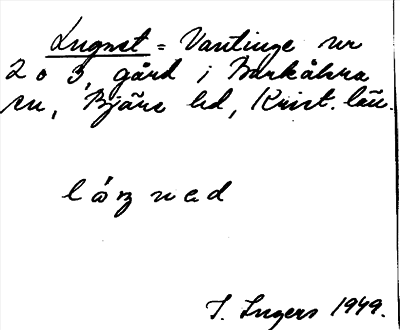 Lugnet = Vantinge nr
2 o 3, gård i Barkåkra
sn, Bjäre hd, Krist. län.
I. Ingers 1949.